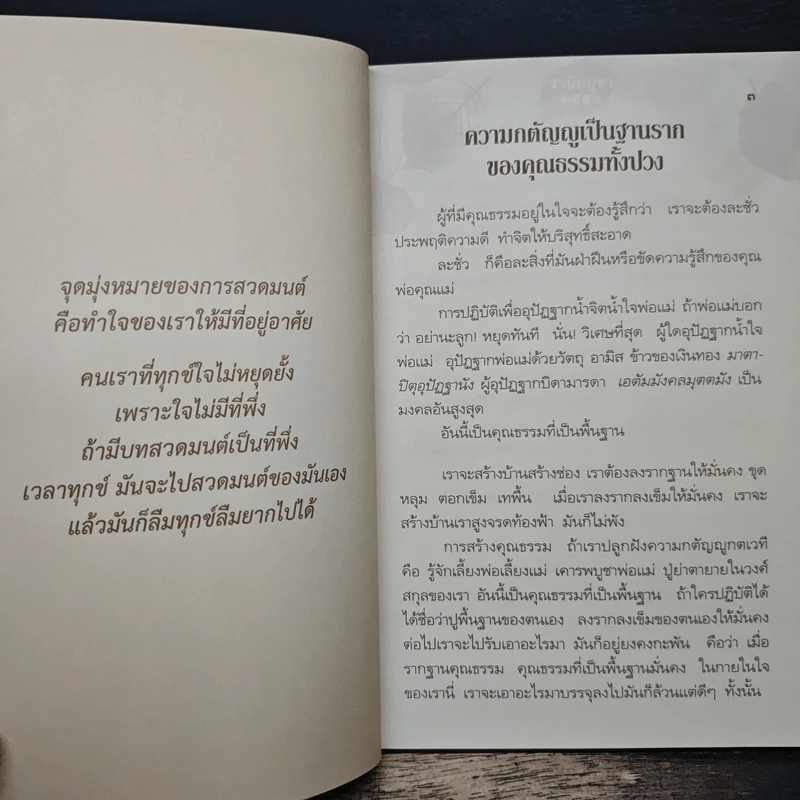 จุดมุ่งหมายของการสวดมนต์
คือทำใจของเราให้มีที่อยู่อาศัย
คนเราที่ทุกข์ใจไม่หยุดยั้ง
เพราะใจไม่มีที่พึ่ง
ถ้ามีบทสวดมนต์เป็นที่พึ่ง
เวลาทุกข์ มันจะไปสวดมนต์ของมันเอง
แล้วมันก็ลืมทุกข์ลืมยากไปได้
๓
ความกตัญญูเป็นฐานราก
ของคุณธรรมทั้งปวง
ผู้ที่มีคุณธรรมอยู่ในใจจะต้องรู้สึกว่า เราจะต้องละชั่ว
ประพฤติความดี ทำจิตให้บริสุทธิ์สะอาด
ละชั่ว ก็คือละสิ่งที่มันฝ่าฝืนหรือขัดความรู้สึกของคุณ
พ่อคุณแม่
การปฏิบัติเพื่ออุปัฏฐากน้ำจิตน้ำใจพ่อแม่ ถ้าพ่อแม่บอก
ว่า อย่านะลูก! หยุดทันที นั่น! วิเศษที่สุด ผู้ใดอุปัฏฐากน้ำใจ
พ่อแม่ อุปัฏฐากพ่อแม่ด้วยวัตถุ อามิส ข้าวของเงินทอง มาตา-
ปิตุอุปัฏฐานัง ผู้อุปัฏฐากบิดามารดา เอตัมมังคลมุตตมัง เป็น
มงคลอันสูงสุด
อันนี้เป็นคุณธรรมที่เป็นพื้นฐาน
เราจะสร้างบ้านสร้างช่อง เราต้องลงรากฐานให้มั่นคง ขุด
หลุม ตอกเข็ม เทพื้น เมื่อเราลงรากลงเข็มให้มั่นคง เราจะ
สร้างบ้านเราสูงจรดท้องฟ้า มันก็ไม่พัง
การสร้างคุณธรรม ถ้าเราปลูกฝังความกตัญญูกตเวที
คือ รู้จักเลี้ยงพ่อเลี้ยงแม่ เคารพบูชาพ่อแม่ ปู่ย่าตายายในวงศ์
สกุลของเรา อันนี้เป็นคุณธรรมที่เป็นพื้นฐาน ถ้าใครปฏิบัติได้
ได้ชื่อว่าปูพื้นฐานของตนเอง ลงรากลงเข็มของตนเองให้มั่นคง
ต่อไปเราจะไปรับเอาอะไรมา มันก็อยู่ยงคงกะพัน คือว่า เมื่อ
รากฐานคุณธรรม คุณธรรมที่เป็นพื้นฐานมั่นคง ในกายในใจ
ของเรานี่ เราจะเอาอะไรมาบรรจุลงไปมันก็ล้วนแต่ดีๆ ทั้งนั้น